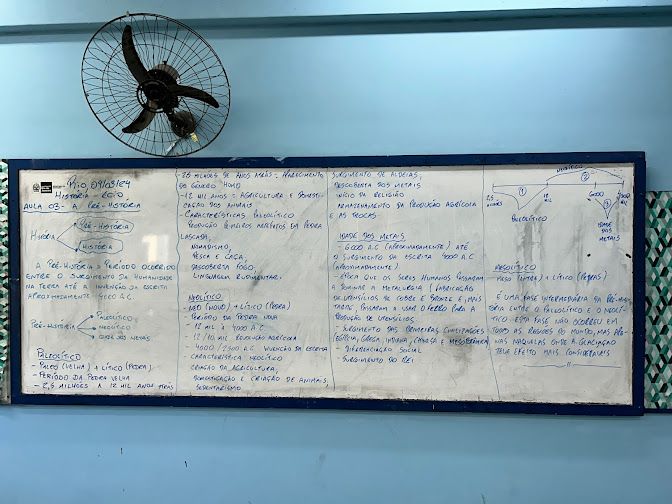 Rio, 09/03/24
História - 2030
AULA 03 - A PRÉ-HISTÓRIA
HISTÓRIA
PRÉ-HISTÓRIA
HISTÓRIA
A PRÉ-HISTÓRIA É PERÍODO OCORRIDO
ENTRE O SURGIMENTO DA HUMANIDADE
NA TERRA ATÉ A INVENÇÃO DA ESCRITA
APROXIMADAMENTE 4000 A.C.
PRÉ-HISTÓRIA
PALEOLÍTICO
NEOLÍTICO
IDADE DOS METAIS
PALEOLÍTICO
- PALEO (VELHA) + LÍTICO (PEDRA)
- PERÍODO DA PEDRA VELHA
- 2,5 MILHÕES A 12 MIL ANOS ATRÁS
MILHÕES DE ANOS ATRÁS = APARECIMENTO
DO GÊNERO HOMO
- 12 MIL ANOS = AGRICULTURA E DOMESTI-
CAÇÃO DOS ANIMAIS
- CARACTERÍSTICAS PALEOLÍTICO
PRODUÇÃO PRIMEIROS ARTEFATOS EM PEDRA
LASCADA,
NOMADISMO,
PESCA E CAÇA,
DESCOBERTA FOGO
LINGUAGEM RUDIMENTAR.
NEOLÍTICO
- NEO (NOVO) + LÍTICO (PEDRA)
- PERÍODO DA PEDRA NOVA
- 12 MIL A 4000 A.C
- 12/10 MIL REVOLUÇÃO AGRÍCOLA
- 4000/3500 A.C INVENÇÃO DA ESCRITA
- CARACTERÍSTICA NEOLÍTICO
CRIAÇÃO DA AGRICULTURA,
DOMESTICAÇÃO E CRIAÇÃO DE ANIMAIS,
SEDENTARISMO
SURGIMENTO DE ALDEIAS,
DESCOBERTA DOS METAIS
INÍCIO DA RELIGIÃO
ARMAZENAMENTO DA PRODUÇÃO AGRÍCOLA
E AS TROCAS.
IDADE DOS METAIS
- 6000 A.C (APROXIMADAMENTE) ATÉ
O SURGIMENTO DA ESCRITA 4000 A.C
(APROXIMADAMENTE)
- ÉPOCA QUE OS SERES HUMANOS PASSARAM
A DOMINAR A METALURGIA (FABRICAÇÃO
DE UTENSÍLIOS DE COBRE E BRONZE E, MAIS
TARDE, PASSARAM A USAR O FERRO PARA A
PRODUÇÃO DE UTENSÍLIOS
- SURGIMENTO DAS PRIMEIRAS CIVILIZAÇÕES
(EGÍPCIA, GREGA, INDIANA, CHINESA E MESOPOTÂMICA)
- DIFERENCIAÇÃO SOCIAL
- SURGIMENTO DO REI
NEOLÍTICO
2,5
1
2
12
MIL
6000
3
PALEOLÍTICO
IDADE
DOS
METAIS
MESOLÍTICO
MESO (ENTRE) + LÍTICO (PEDRAS)
É UMA FASE INTERMEDIÁRIA DA PRÉ-HIS-
TÓRIA ENTRE O PALEOLÍTICO E O NEOLÍ-
TICO ESTA FASE NÃO OCORREU EM
TODO AS REGIÕES DO MUNDO, MAS APE-
NAS NAQUELAS ONDE A GLACIAÇÃO
TEVE EFEITO MAIS CONSIDERÁVEIS